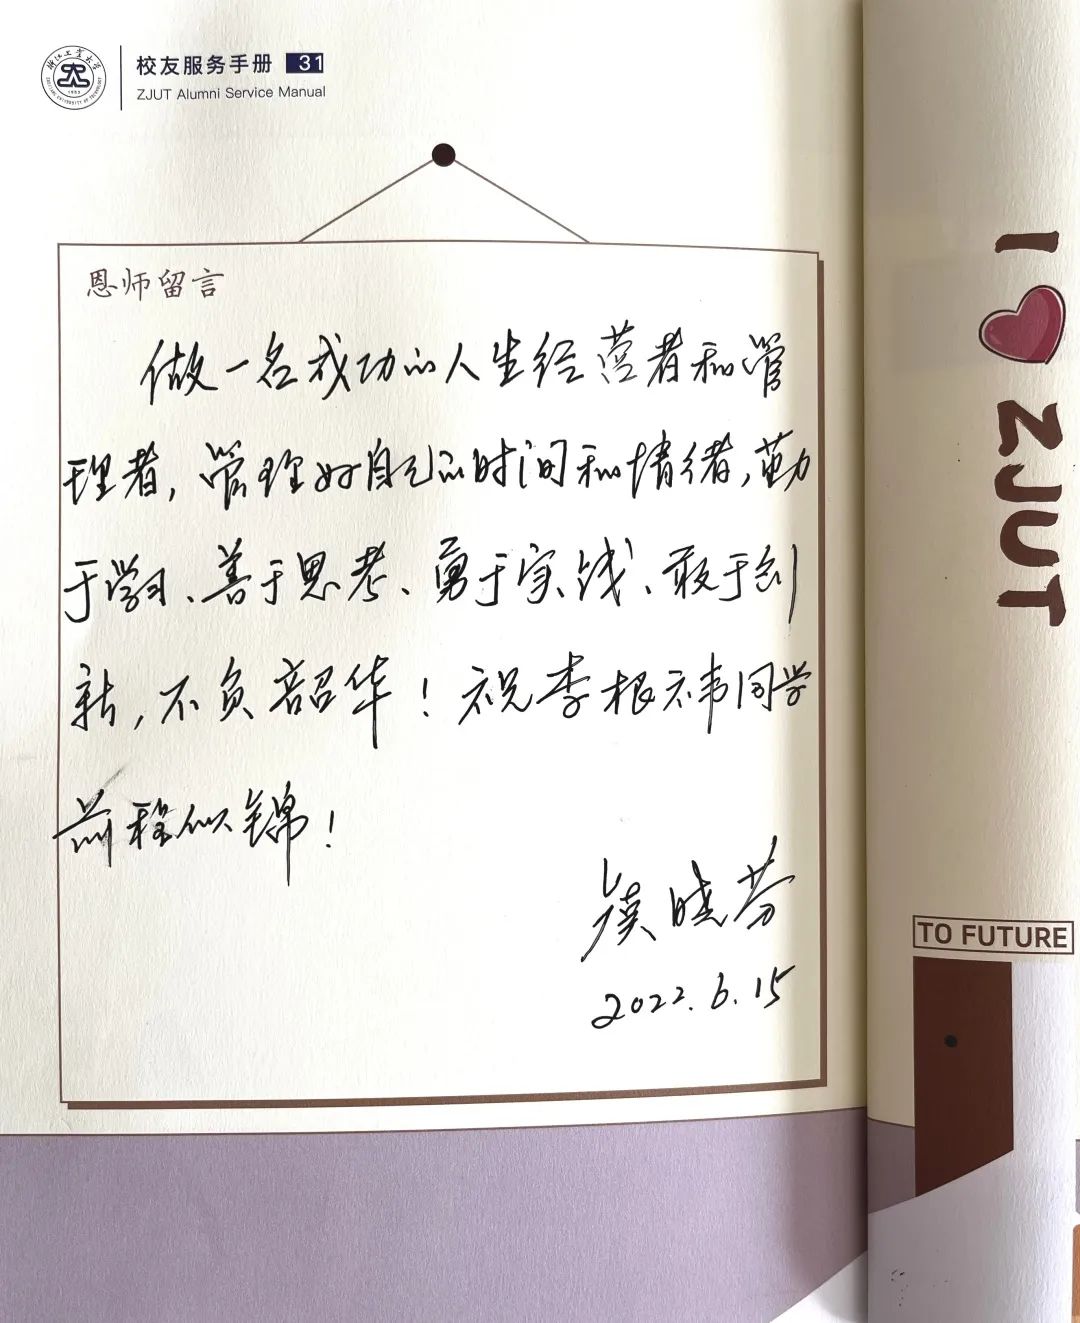 浙江工业大学
ZHEJIANG UNIVERSITY OF TECHNOLOGY
1953
校友服务手册 31
ZJUT Alumni Service Manual
恩师留言
做一名成功的人生经营者和管
理者，管理好自己的时间和情绪，勤
于学习、善于思考、勇于实践、敢于创
新，不负韶华！祝李根祎同学
前程似锦！
晓芬
2022.6.15
I
ZJUT
TO FUTURE